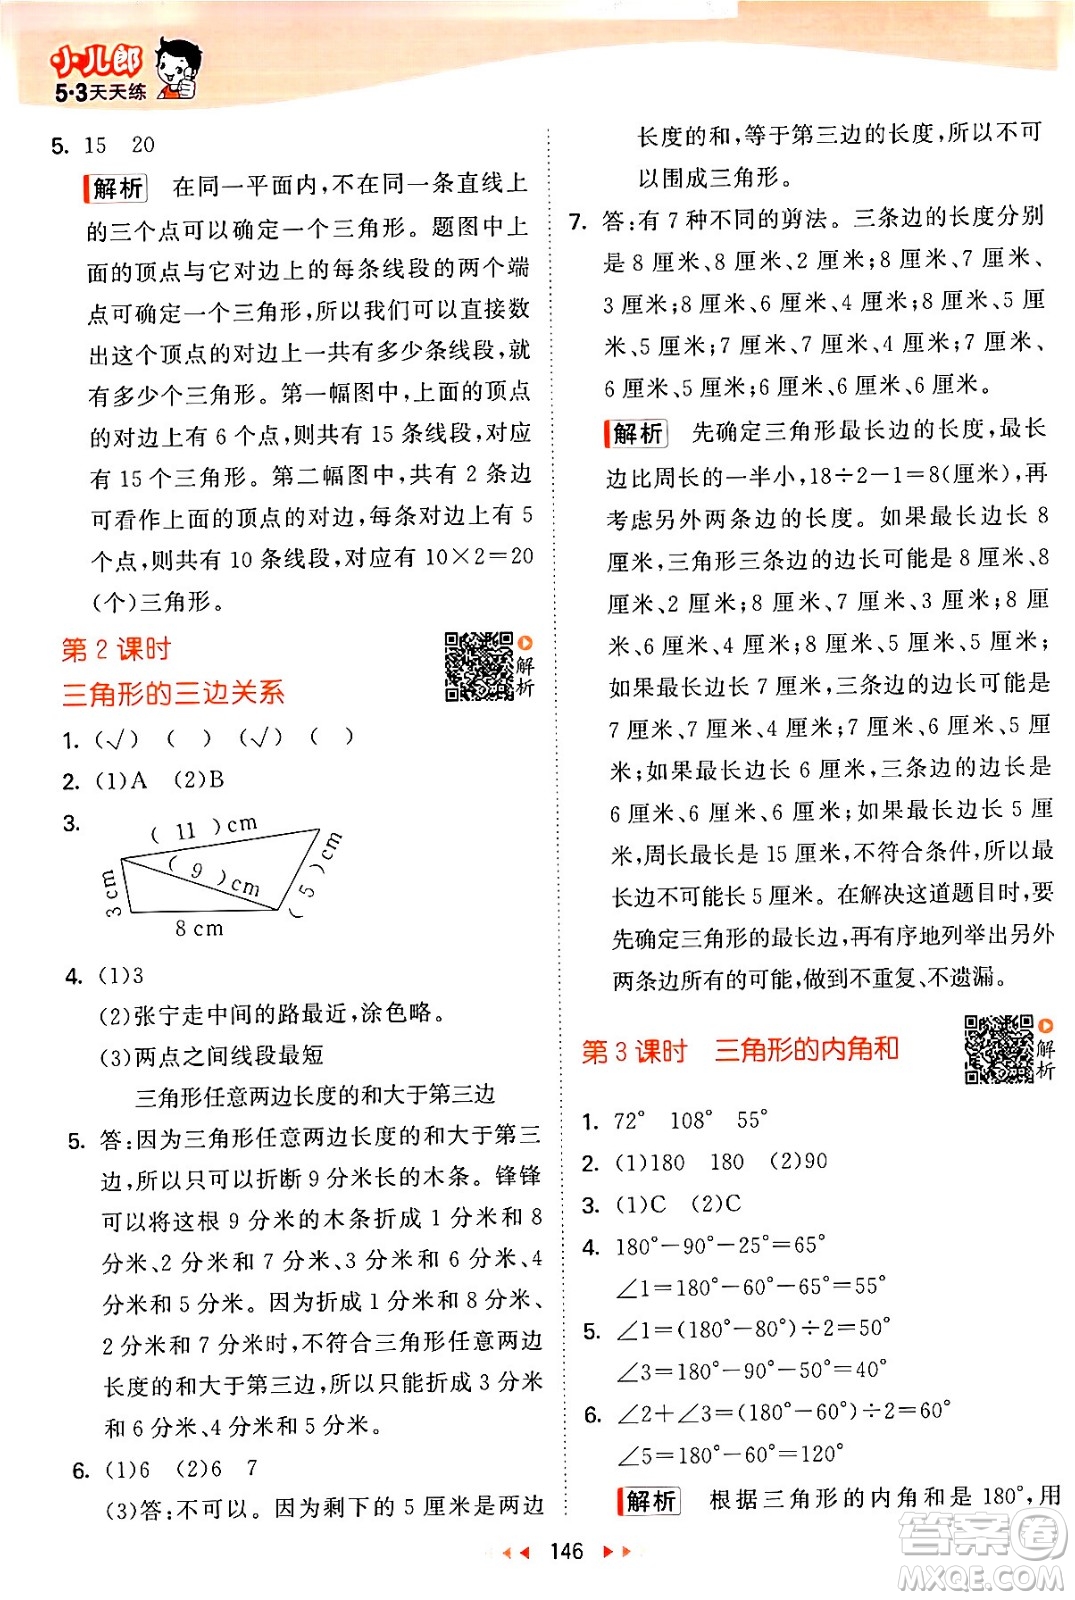 小儿郎
5·3天天练
5. 15 20
解析 在同一平面内,不在同一条直线上
的三个点可以确定一个三角形。题图中上
面的顶点与它对边上的每条线段的两个端
点可确定1个三角形,所以我们可以直接数
出这个顶点的对边上一共有多少条线段,就
有多少个三角形。第一幅图中,上面的顶点
的对边上有6个点,共有15条线段,对应
有15个三角形。第二幅图中,共有2条边
可看作上面的顶点的对边,每条边上有5
个点,则共有10条线段,对应有10×2=20
(个)三角形。
第2课时
三角形的三边关系
解析
1. (√) ( ) (√) ( )
2. (1)A (2)B
3.
( 11 )cm
( 9 )cm
( 5 )cm
3 cm
8 cm
4. (1)3
(2)张宁走中间的路最近,涂色略。
(3)两点之间线段最短
三角形任意两边长度的和大于第三边
5. 答:因为三角形任意两边长度的和大于第三
边,所以只可以折断9分米长的木条。锋锋
可以将这根9分米的木条折成1分米和8
分米、2分米和7分米、3分米和6分米、4
分米和5分米。因为折成1分米和8分米、
2分米和7分米时,不符合三角形任意两边
长度的和大于第三边,所以只能折成3分米
和6分米、4分米和5分米。
6. (1)6 (2)6 7
(3)答:不可以。因为剩下的5厘米是两边
长度的和,等于第三边的长度,所以不可
以围成三角形。
7. 答:有7种不同的剪法。三条边的长度分别
是8厘米、8厘米、2厘米;8厘米、7厘米、
3厘米;8厘米、6厘米、4厘米;8厘米、5厘
米、5厘米;7厘米、7厘米、4厘米;7厘米、
6厘米、5厘米;6厘米、6厘米、6厘米。
解析 先确定三角形最长边的长度,最长
边比周长的一半小,18÷2-1=8(厘米),再
考虑另外两条边的长度。如果最长边长8
厘米,三角形三条边的边长可能是8厘米、8
厘米、2厘米;8厘米、7厘米、3厘米;8厘
米、6厘米、4厘米;8厘米、5厘米、5厘米;
如果最长边长7厘米,三条边的边长可能是
7厘米、7厘米、4厘米;7厘米、6厘米、5厘
米;如果最长边长6厘米,三条边的边长是
6厘米、6厘米、6厘米;如果最长边长5厘
米,周长最长是15厘米,不符合条件,所以最
长边不可能长5厘米。在解决这道题目时,要
先确定三角形的最长边,再有序地列举出另外
两条边所有的可能,做到不重复、不遗漏。
第3课时 三角形的内角和
解析
1. 72° 108° 55°
2. (1)180 180 (2)90
3. (1)C (2)C
4. 180°-90°-25°=65°
∠1=180°-60°-65°=55°
5. ∠1=(180°-80°)÷2=50°
∠3=180°-60°=120°
6. ∠2+∠3=(180°-60°)÷2=60°
∠5=180°-60°=120°
解析 根据三角形的内角和是180°,用
146
答案圈
MXQE.COM